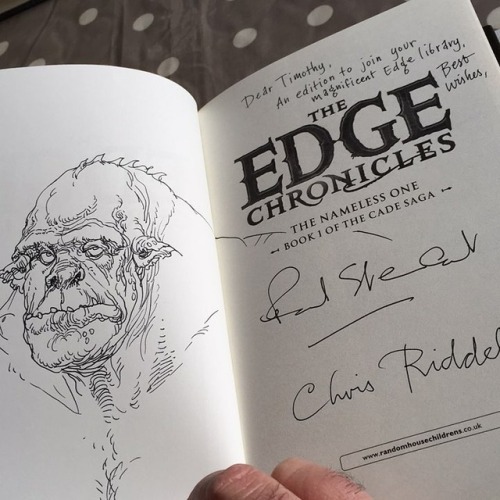 Dear Timothy,
An edition to join your
magnificent Edge library,
Best
wishes,
THE
EDGE
CHRONICLES
THE NAMELESS ONE
BOOK 1 OF THE CADE SAGA
Paul Stewart
Chris Riddel
www.randomhousechildrens.co.uk